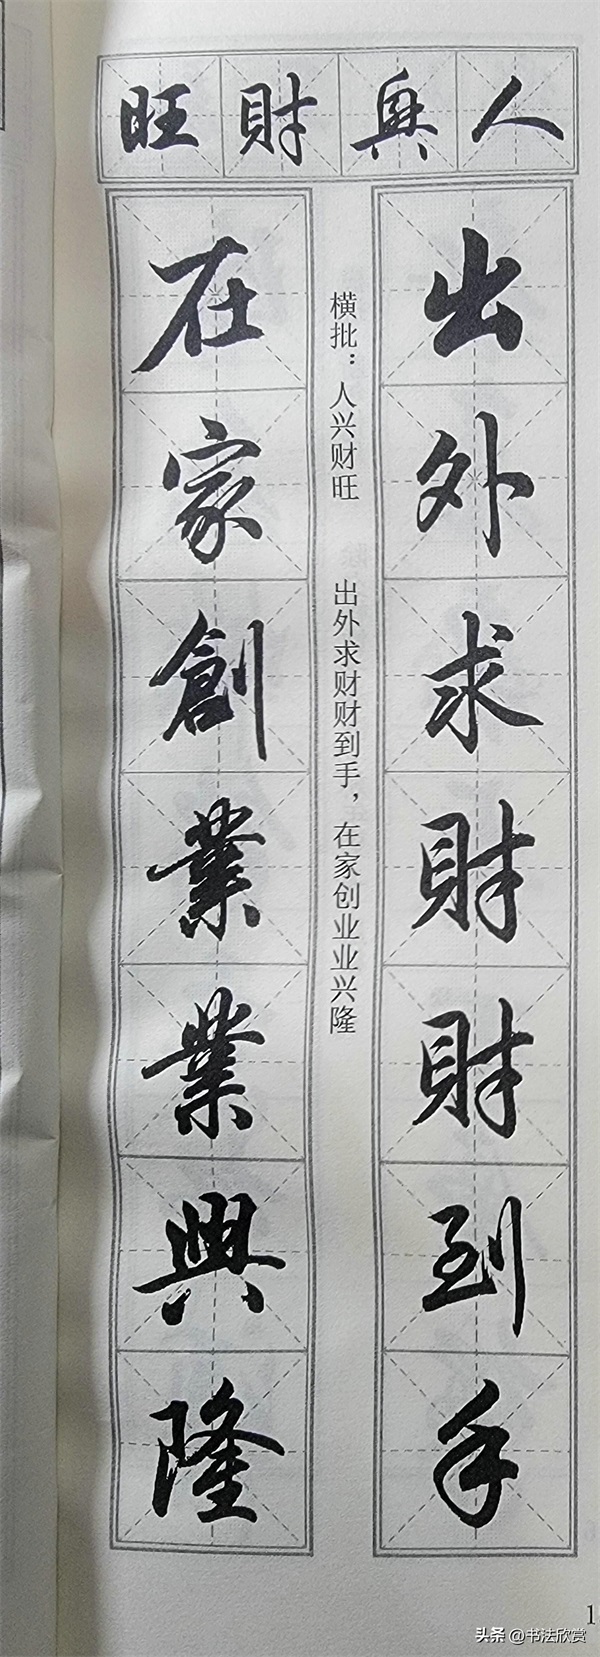 人興財旺
出外求財財到手
横批：人兴财旺 出外求财财到手，在家创业业兴隆
在家創業業興隆
1
头条 @书法欣赏